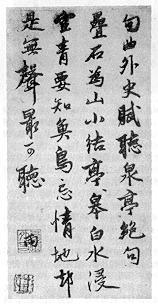 句曲外史賦聽泉亭絕句
疊石為山小結亭皋白水浸
雲青要知魚鳥忘情地却
是無聲最可聽